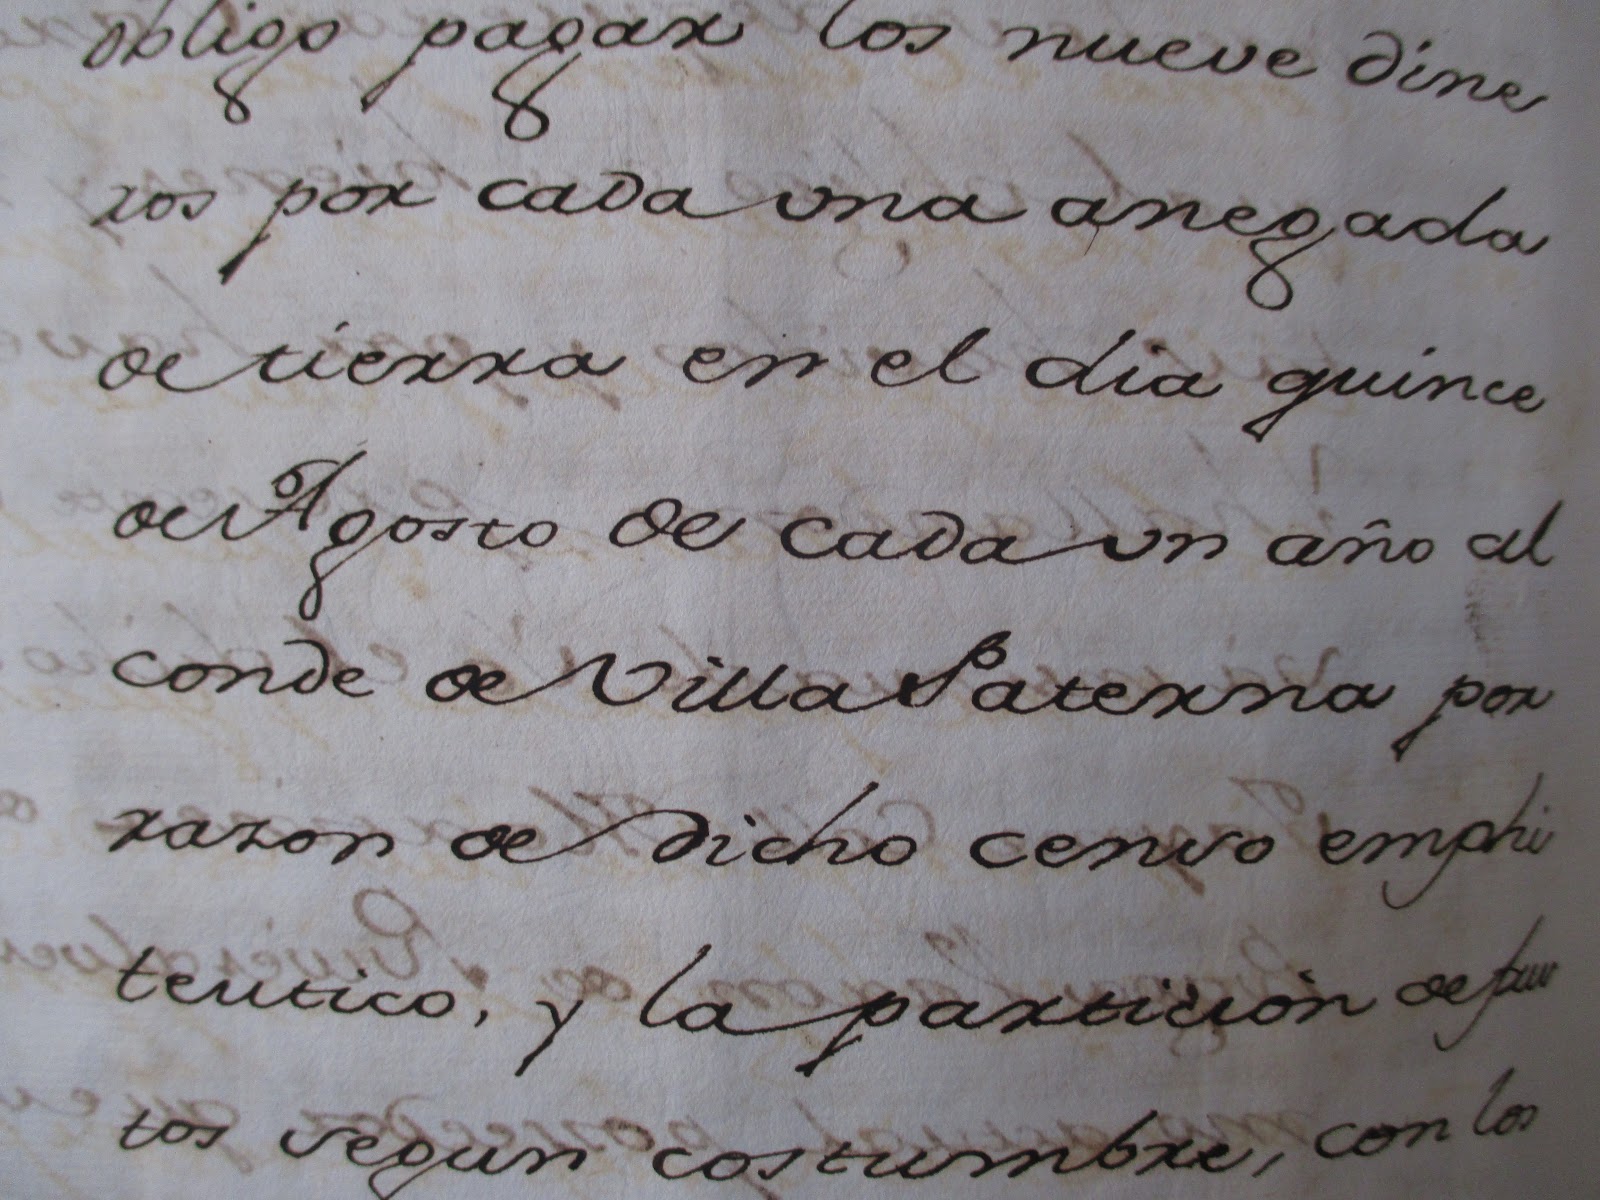 obligo pagar los nueve dine
ros por cada una anegada
de tierra en el dia quince
de Agosto de cada un año al
conde de Villa Paterna por
razon de dicho censo emphi
teutico, y la particion de fru
tos segun costumbre, con los